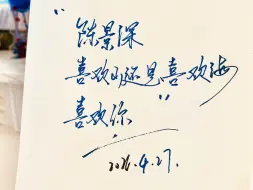 “陈景深
喜欢山还是喜欢海
喜欢你”
2026.4.27.